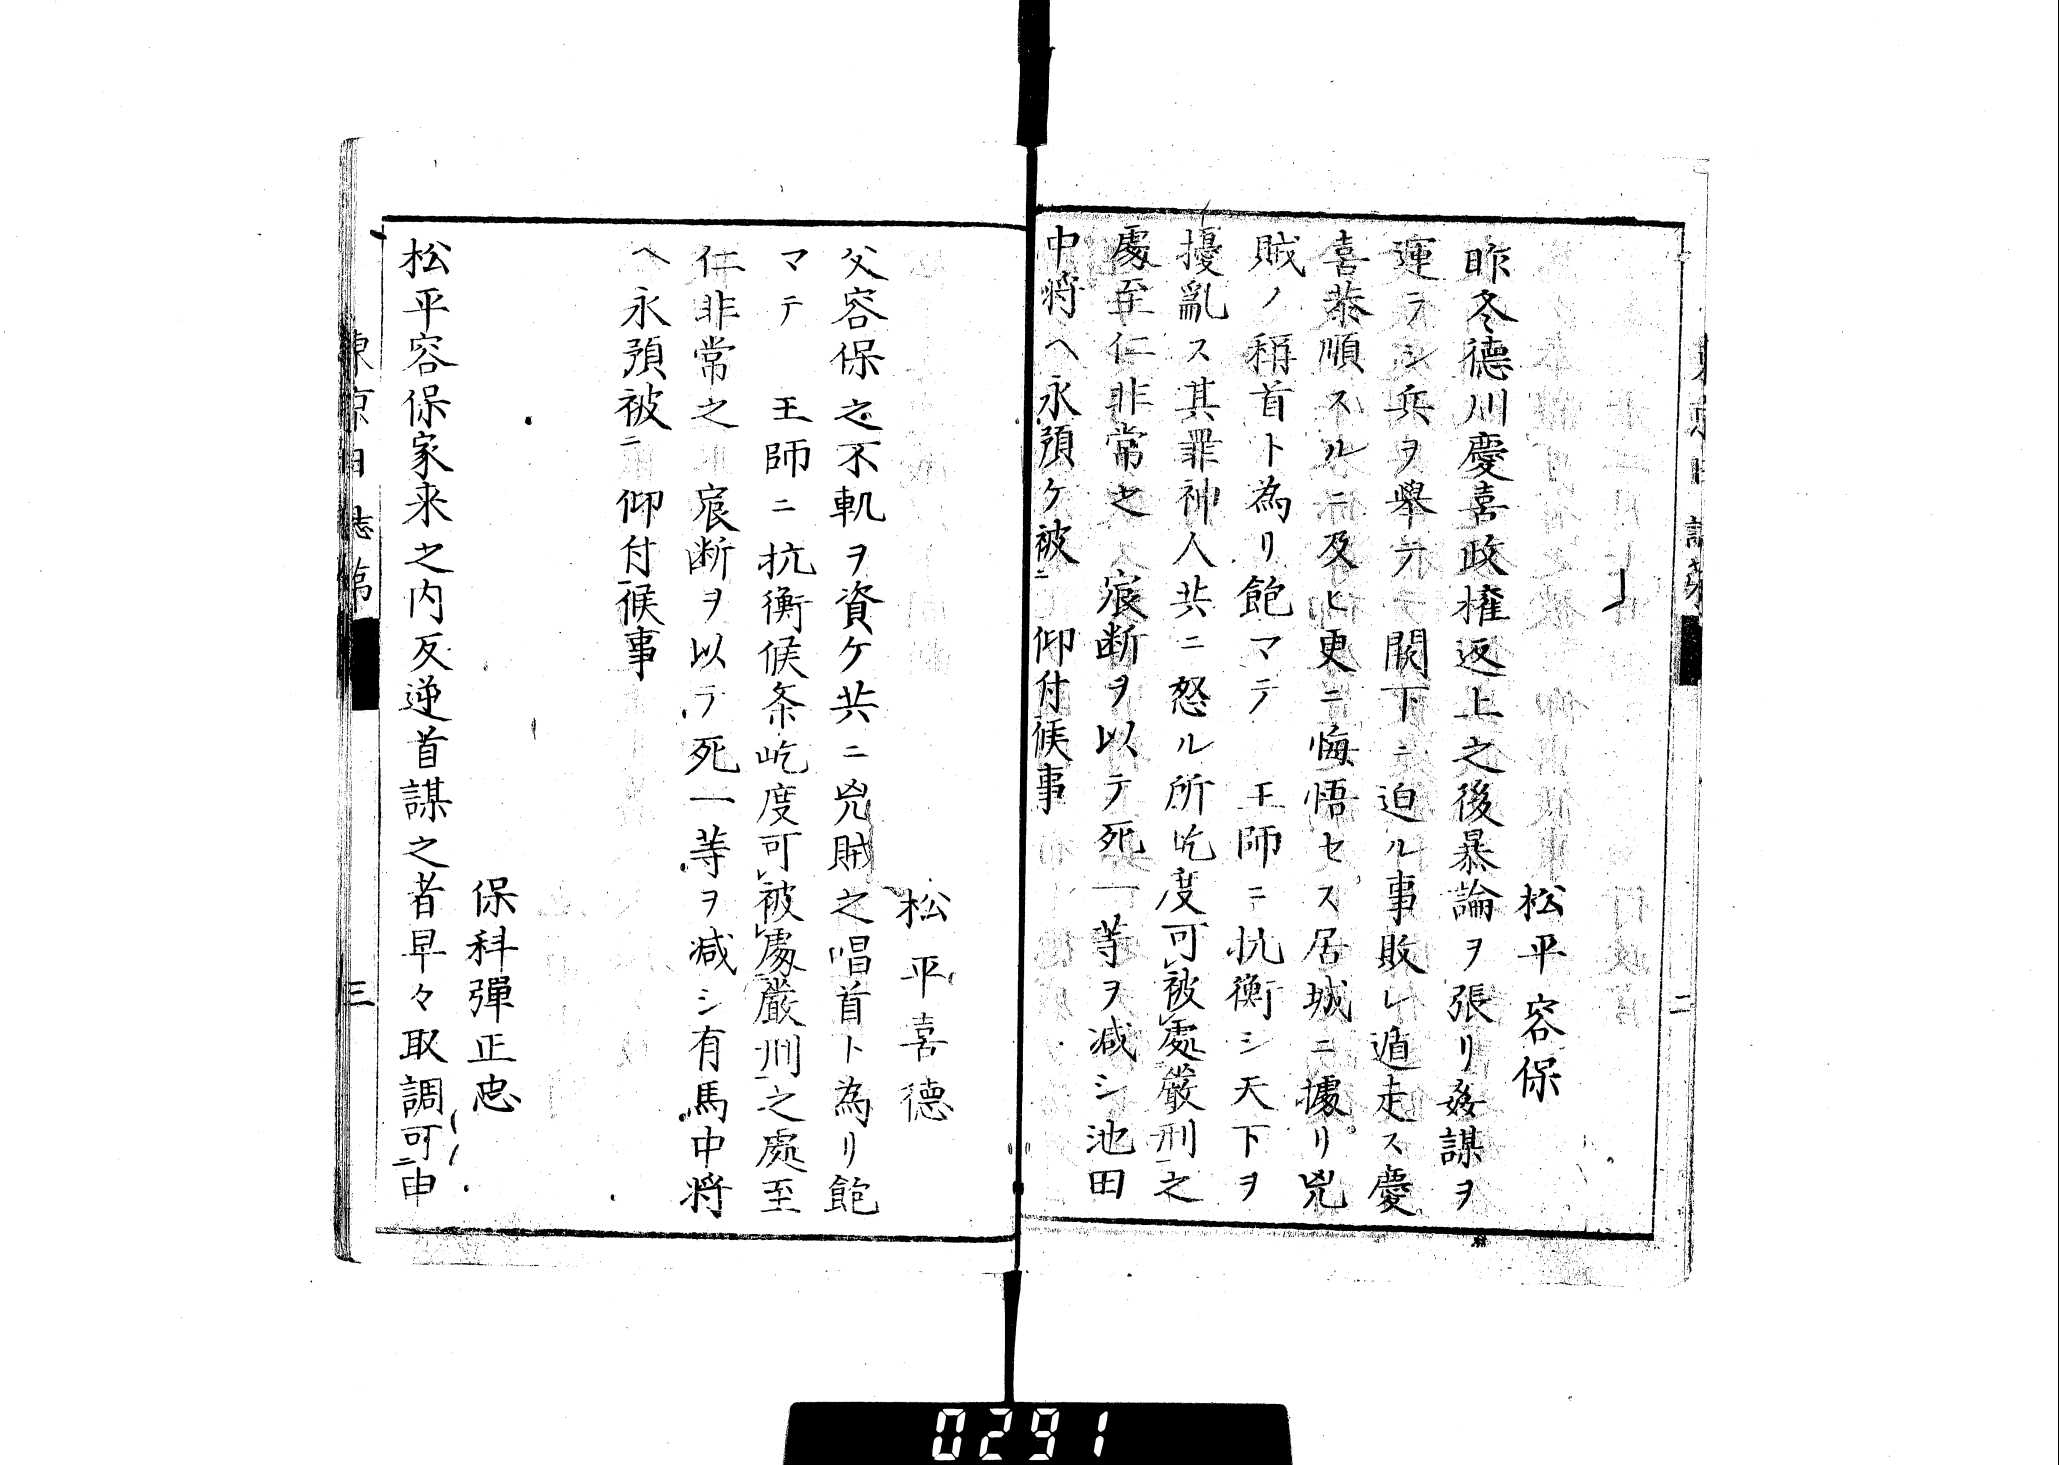 松平容保
昨冬德川慶喜政權返上之後暴論ヲ張リ姦謀ヲ
運ラシ兵ヲ擧テ 闕下ニ迫ル事敗レ遁走ス慶
喜恭順スルニ及ヒ更ニ悔悟セス居城ニ據リ兇
賊ノ稱首ト為リ飽マテ 王師ニ抗衡シ天下ヲ
擾亂ス其罪神人共ニ怒ル所屹度可被處嚴刑之
處至仁非常之 宸断ヲ以テ死一等ヲ减シ池田
中将ヘ永預ケ被ニ 仰付候事
松平喜德
父容保之不軌ヲ資ケ共ニ兇賊之唱首ト為リ飽
マテ 王師ニ抗衡候条屹度可被處嚴刑之處至
仁非常之 宸断ヲ以テ死一等ヲ减シ有馬中将
ヘ永預被ニ 仰付候事
保科彈正忠
松平容保家来之内反逆首謀之者早々取調可ニ申
東京日誌第
三
二
0291